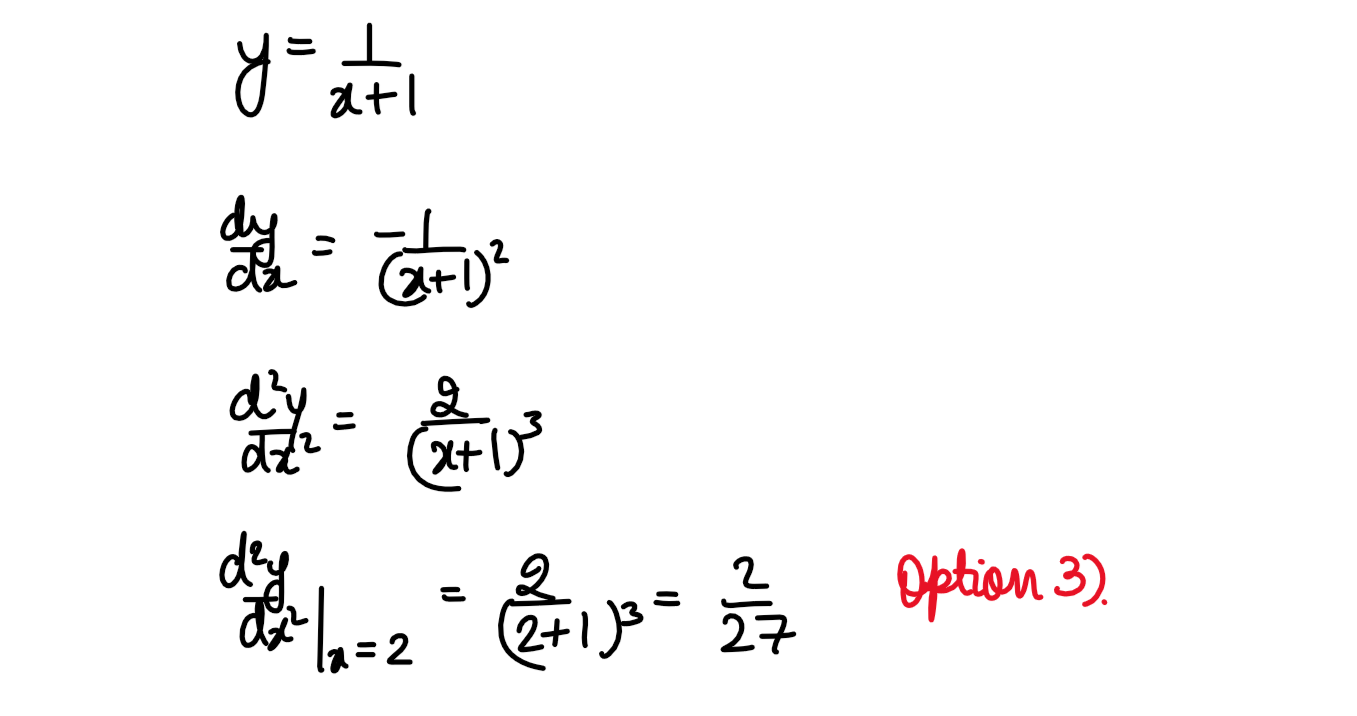 y = 1/(x+1)
dy/dx = -1/(x+1)²
d²y/dx² = 2/(x+1)³
d²y/dx² |x=2 = 2/(2+1)³ = 2/27 Option 3).